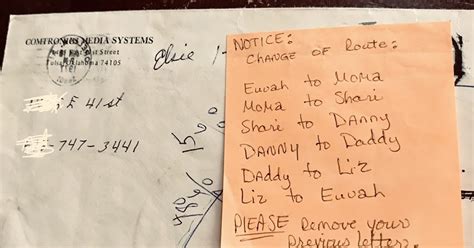 COMTRONICS MEDIA SYSTEMS
East 41st Street
Tulsa, Oklahoma 74105
Elsie
E 41st
-747-3441
NOTICE:
CHANGE OF ROUTE:
Euvah to MOMA
MOMA to Shari
Shari to DANNY
DANNY to Daddy
Daddy to Liz
Liz to Euvah
PLEASE Remove your
Previous letter.